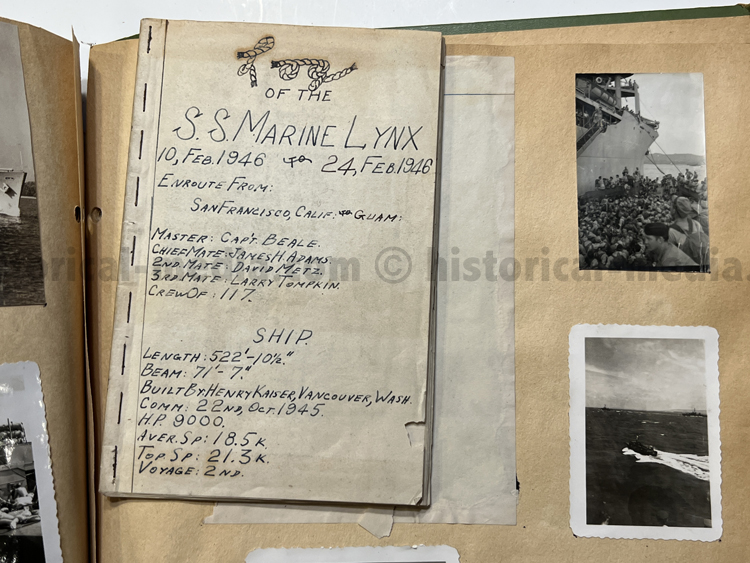 Log
OF THE
S.S. MARINE LYNX
10, FEB. 1946 to 24, FEB. 1946
ENROUTE FROM:
SAN FRANCISCO, CALIF. to GUAM:
MASTER: CAP'T. BEALE.
CHIEF MATE: JAMES H. ADAMS.
2ND. MATE: DAVID METZ.
3RD. MATE: LARRY TOMPKIN.
CREW OF: 117.
SHIP.
LENGTH: 522'-10½."
BEAM: 71'-7."
BUILT BY: HENRY KAISER, VANCOUVER, WASH.
COMM: 22ND, OCT. 1945.
H.P. 9000.
AVER. SP: 18.5 K.
TOP SP: 21.3 K.
VOYAGE: 2ND.
© historical-media